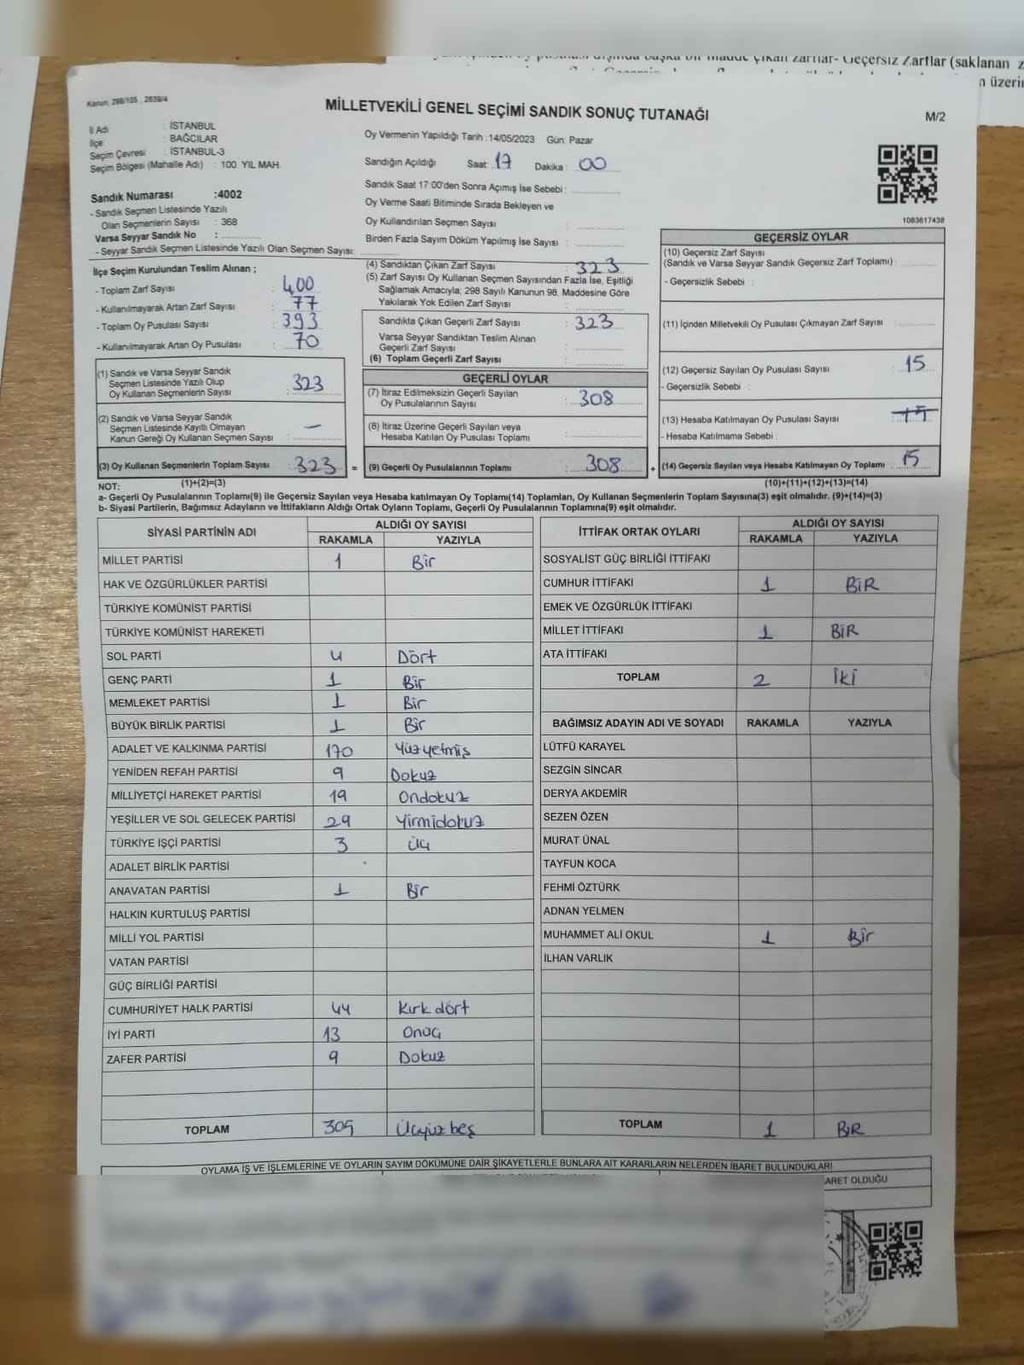 başka bir madde çıkan zarflar- Geçersiz Zarflar (saklanan
n üzeri
Kanun, 298/105 : 2839/4
MİLLETVEKİLİ GENEL SEÇİMİ SANDIK SONUÇ TUTANAĞI
M/2
İl Adı : İSTANBUL
İlçe : BAĞCILAR
Seçim Çevresi : İSTANBUL-3
Seçim Bölgesi (Mahalle Adı) : 100. YIL MAH.
Oy Vermenin Yapıldığı Tarih :14/05/2023 Gün: Pazar
Sandığın Açıldığı Saat: 17 Dakika : 00
Sandık Saat 17:00'den Sonra Açımış İse Sebebi :
Oy Verme Saati Bitiminde Sırada Bekleyen ve
Oy Kullandırılan Seçmen Sayısı :
Birden Fazla Sayım Döküm Yapılmış İse Sayısı :
Sandık Numarası :4002
- Sandık Seçmen Listesinde Yazılı
Olan Seçmenlerin Sayısı : 368
Varsa Seyyar Sandık No :
- Seyyar Sandık Seçmen Listesinde Yazılı Olan Seçmen Sayısı:
1083617438
İlçe Seçim Kurulundan Teslim Alınan ;
- Toplam Zarf Sayısı : 400
- Kullanılmayarak Artan Zarf Sayısı : 77
- Toplam Oy Pusulası Sayısı : 393
- Kullanılmayarak Artan Oy Pusulası : 70
(1) Sandık ve Varsa Seyyar Sandık
Seçmen Listesinde Yazılı Olup
Oy Kullanan Seçmenlerin Sayısı : 323
(2) Sandık ve Varsa Seyyar Sandık
Seçmen Listesinde Kayıtlı Olmayan
Kanun Gereği Oy Kullanan Seçmen Sayısı : –
(3) Oy Kullanan Seçmenlerin Toplam Sayısı : 323 =
(4) Sandıktan Çıkan Zarf Sayısı : 323
(5) Zarf Sayısı Oy Kullanan Seçmen Sayısından Fazla İse, Eşitliği
Sağlamak Amacıyla; 298 Sayılı Kanunun 98. Maddesine Göre
Yakılarak Yok Edilen Zarf Sayısı :
Sandıkta Çıkan Geçerli Zarf Sayısı : 323
Varsa Seyyar Sandıktan Teslim Alınan
Geçerli Zarf Sayısı :
(6) Toplam Geçerli Zarf Sayısı :
GEÇERLİ OYLAR
(7) İtiraz Edilmeksizin Geçerli Sayılan
Oy Pusulalarının Sayısı : 308
(8) İtiraz Üzerine Geçerli Sayılan veya
Hesaba Katılan Oy Pusulası Toplamı :
(9) Geçerli Oy Pusulalarının Toplamı : 308 +
GEÇERSİZ OYLAR
(10) Geçersiz Zarf Sayısı
(Sandık ve Varsa Seyyar Sandık Geçersiz Zarf Toplamı) :
- Geçersizlik Sebebi :
(11) İçinden Milletvekili Oy Pusulası Çıkmayan Zarf Sayısı :
(12) Geçersiz Sayılan Oy Pusulası Sayısı : 15
- Geçersizlik Sebebi :
(13) Hesaba Katılmayan Oy Pusulası Sayısı :
- Hesaba Katılmama Sebebi :
(14) Geçersiz Sayılan veya Hesaba Katılmayan Oy Toplamı : 15
NOT: (1)+(2)=(3)
(10)+(11)+(12)+(13)=(14)
a- Geçerli Oy Pusulalarının Toplamı(9) ile Geçersiz Sayılan veya Hesaba katılmayan Oy Toplamı(14) Toplamları, Oy Kullanan Seçmenlerin Toplam Sayısına(3) eşit olmalıdır. (9)+(14)=(3)
b- Siyasi Partilerin, Bağımsız Adayların ve İttifakların Aldığı Ortak Oyların Toplamı, Geçerli Oy Pusulalarının Toplamına(9) eşit olmalıdır.
SİYASİ PARTİNİN ADI ALDIĞI OY SAYISI
RAKAMLA YAZIYLA
MİLLET PARTİSİ 1 Bir
HAK VE ÖZGÜRLÜKLER PARTİSİ
TÜRKİYE KOMÜNİST PARTİSİ
TÜRKİYE KOMÜNİST HAREKETİ
SOL PARTİ 4 Dört
GENÇ PARTİ 1 Bir
MEMLEKET PARTİSİ 1 Bir
BÜYÜK BİRLİK PARTİSİ 1 Bir
ADALET VE KALKINMA PARTİSİ 170 Yüzyetmiş
YENİDEN REFAH PARTİSİ 9 Dokuz
MİLLİYETÇİ HAREKET PARTİSİ 19 Ondokuz
YEŞİLLER VE SOL GELECEK PARTİSİ 29 Yirmidokuz
TÜRKİYE İŞÇİ PARTİSİ 3 Üç
ADALET BİRLİK PARTİSİ
ANAVATAN PARTİSİ 1 Bir
HALKIN KURTULUŞ PARTİSİ
MİLLİ YOL PARTİSİ
VATAN PARTİSİ
GÜÇ BİRLİĞİ PARTİSİ
CUMHURİYET HALK PARTİSİ 44 Kırk dört
İYİ PARTİ 13 Onüç
ZAFER PARTİSİ 9 Dokuz
TOPLAM 305 Üçyüz beş
İTTİFAK ORTAK OYLARI ALDIĞI OY SAYISI
RAKAMLA YAZIYLA
SOSYALİST GÜÇ BİRLİĞİ İTTİFAKI
CUMHUR İTTİFAKI 1 BİR
EMEK VE ÖZGÜRLÜK İTTİFAKI
MİLLET İTTİFAKI 1 BİR
ATA İTTİFAKI
TOPLAM 2 İki
BAĞIMSIZ ADAYIN ADI VE SOYADI RAKAMLA YAZIYLA
LÜTFÜ KARAYEL
SEZGİN SİNCAR
DERYA AKDEMİR
SEZEN ÖZEN
MURAT ÜNAL
TAYFUN KOCA
FEHMİ ÖZTÜRK
ADNAN YELMEN
MUHAMMET ALİ OKUL 1 Bir
İLHAN VARLIK
TOPLAM 1 BİR
OYLAMA İŞ VE İŞLEMLERİNE VE OYLARIN SAYIM DÖKÜMÜNE DAİR ŞİKAYETLERLE BUNLARA AİT KARARLARIN NELERDEN İBARET BULUNDUKLARI
ARET OLDUĞU